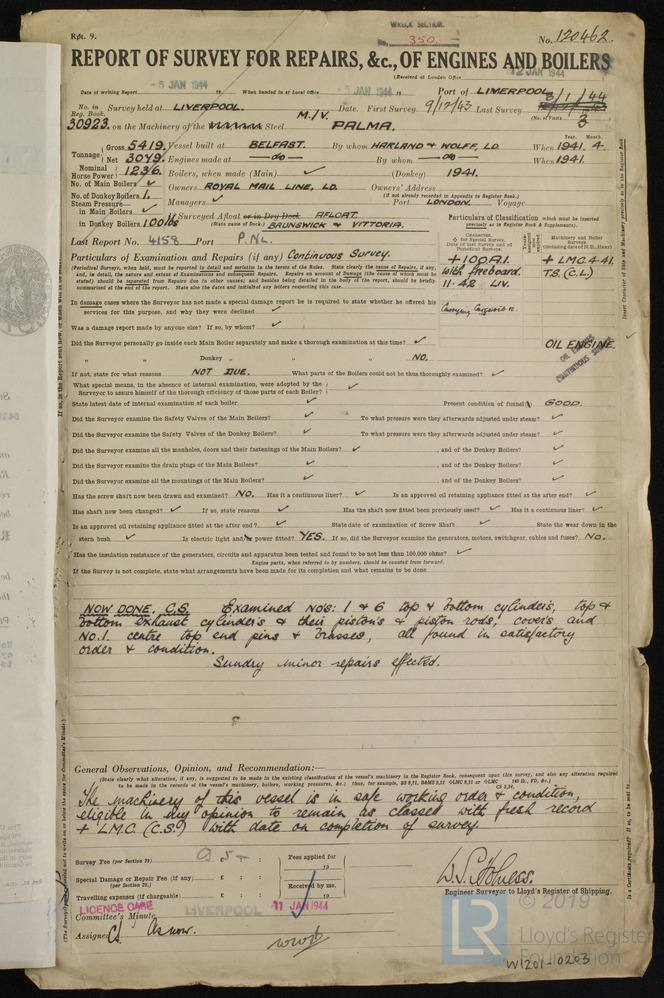 WRECK SECTION.
Rpt. 9.
No. 350.
No. 120462.
REPORT OF SURVEY FOR REPAIRS, &c., OF ENGINES AND BOILERS
(Received at London Office
12 JAN 1944
Date of writing Report -6 JAN 1944 19 When handed in at Local Office -6 JAN 1944 19 Port of LIVERPOOL
No. in Reg. Book. Survey held at LIVERPOOL. Date. First Survey 9/12/43 Last Survey 3/1/44
(No. of Visits 3
30923. on the Machinery of the Steel M/V. PALMA.
Tonnage Gross 5419. Vessel built at BELFAST. By whom HARLAND & WOLFF, LD. When 1941. 4.
Year. Month.
Net 3049. Engines made at — do — By whom — do — When 1941.
Nominal Horse Power 1236. Boilers, when made (Main) ✓ (Donkey) 1941.
No. of Main Boilers ✓ Owners ROYAL MAIL LINE, LD. Owners' Address
(if not already recorded in Appendix to Register Book.)
No. of Donkey Boilers 1. Managers ✓ Port LONDON. Voyage
Steam Pressure—
in Main Boilers ✓
in Donkey Boilers 100 lbs
Surveyed Afloat or in Dry Dock AFLOAT.
(State name of Dock.) BRUNSWICK & VITTORIA.
Last Report No. 4158 Port P.NL.
Particulars of Classification which must be inserted
precisely as in Register Book & Supplements).
CHARACTER.
Machinery and Boiler Surveys
(including dates of N.B., fixes)
+100A1. + LMC 4.41.
with freeboard. T.S. (C.L)
11.42 LIV.
Particulars of Examination and Repairs (if any) Continuous Survey.
(Periodical Surveys, when held, must be reported in detail and seriatim in the terms of the Rules. State clearly the cause of Repairs, if any,
and, in detail, the nature and extent of Examinations and consequent Repairs. Repairs on account of Damage (the cause of which must be
stated) should be separated from Repairs due to other causes; and besides being detailed in the body of the report, should be briefly
summarised at the end of the report. State also the dates and initials of any letters respecting this case.
In damage cases where the Surveyor has not made a special damage report he is required to state whether he offered his
services for this purpose, and why they were declined ✓
Was a damage report made by anyone else? If so, by whom? ✓
Did the Surveyor personally go inside each Main Boiler separately and make a thorough examination at this time? ✓
OIL ENGINE.
CONTINUOUS SURVEY.
„ „ Donkey „ „ „ NO.
If not, state for what reasons NOT DUE. What parts of the Boilers could not be thus thoroughly examined? ✓
What special means, in the absence of internal examination, were adopted by the
Surveyor to assure himself of the thorough efficiency of those parts of each Boiler? ✓
State latest date of internal examination of each boiler ✓ Present condition of funnel GOOD.
Did the Surveyor examine the Safety Valves of the Main Boilers? ✓ To what pressure were they afterwards adjusted under steam? ✓
Did the Surveyor examine the Safety Valves of the Donkey Boilers? ✓ To what pressure were they afterwards adjusted under steam? ✓
Did the Surveyor examine all the manholes, doors and their fastenings of the Main Boilers? ✓ , and of the Donkey Boilers? ✓
Did the Surveyor examine the drain plugs of the Main Boilers? ✓ , and of the Donkey Boilers? ✓
Did the Surveyor examine all the mountings of the Main Boilers? ✓ , and of the Donkey Boilers? ✓
Has the screw shaft now been drawn and examined? NO. Has it a continuous liner? ✓ Is an approved oil retaining appliance fitted at the after end? ✓
Has shaft now been changed? ✓ If so, state reasons ✓ Has the shaft now fitted been previously used? ✓ Has it a continuous liner? ✓
Is an approved oil retaining appliance fitted at the after end? ✓ State date of examination of Screw Shaft ✓ State the wear down in the
stern bush ✓ Is electric light and power fitted? YES. If so, did the Surveyor examine the generators, motors, switchgear, cables and fuses? No.
Has the insulation resistance of the generators, circuits and apparatus been tested and found to be not less than 100,000 ohms? ✓
Engine parts, when referred to by numbers, should be counted from forward.
If the Survey is not complete, state what arrangements have been made for its completion and what remains to be done
NOW DONE, C.S. Examined No's: 1 & 6 top & bottom cylinders, top &
bottom exhaust cylinders & their pistons & piston rods, covers and
No. 1. centre top end pins & brasses, all found in satisfactory
order & condition.
Sundry minor repairs effected.
General Observations, Opinion, and Recommendation:—
(State clearly what alteration, if any, is suggested to be made in the existing classification of the vessel's machinery in the Register Book, consequent upon this survey, and also any alteration required
to be made in the records of the vessel's machinery, boilers, working pressures, &c.; thus, for example, BS 9,11, B&MS 9,11 LMC 9,11 or LMC 140 lb., FD, &c.)
CS 3,24,
The machinery of this vessel is in safe working order & condition,
eligible in my opinion to remain as classed with fresh record
+ LMC. (C.S?) with date on completion of survey.
Survey Fee (per Section 29) £ 5 : - : Fees applied for
19
Special Damage or Repair Fee (if any) £ : :
(per Section 29.)
Received by me,
Travelling expenses (if chargeable) £ : : 19
Engineer Surveyor to Lloyd's Register of Shipping.
LICENCE CASE
LIVERPOOL 11 JAN 1944
Committee's Minute
Assigned As now.
© 2019
LR
Lloyd's Register
Foundation
W1201-0203